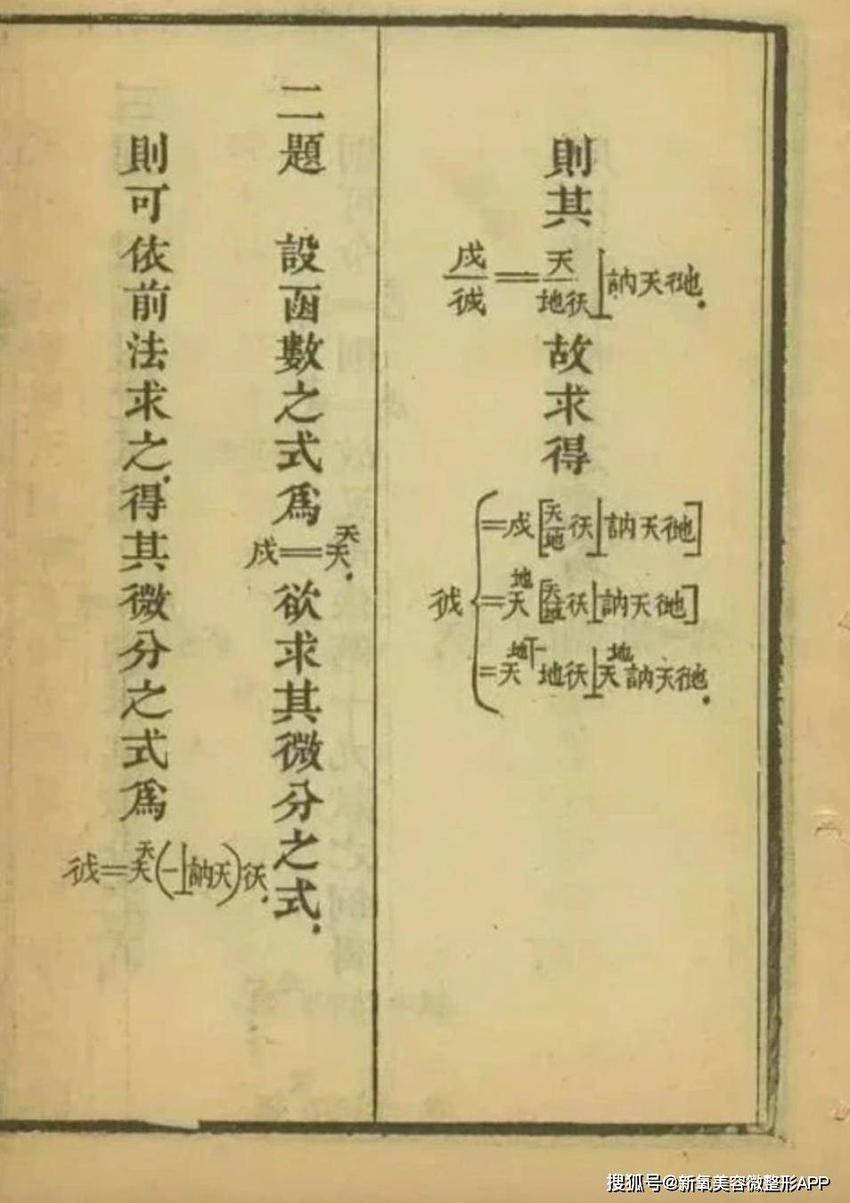 則其
戌/⿰彳戌=天/地⿰彳天⊥訥天⿰彳地.
故求得
⿰彳戌{=戌[天/地⿰彳天⊥訥天⿰彳地]
=天^地[天/地⿰彳天⊥訥天⿰彳地]
=天^地丅一地⿰彳天⊥天^地訥天⿰彳地.
二題 設函數之式爲
戌=天^天.
欲求其微分之式.
則可依前法求之.得其微分之式爲
⿰彳戌=天^天(一⊥訥天)⿰彳天.
搜狐号@新氧美容微整形APP